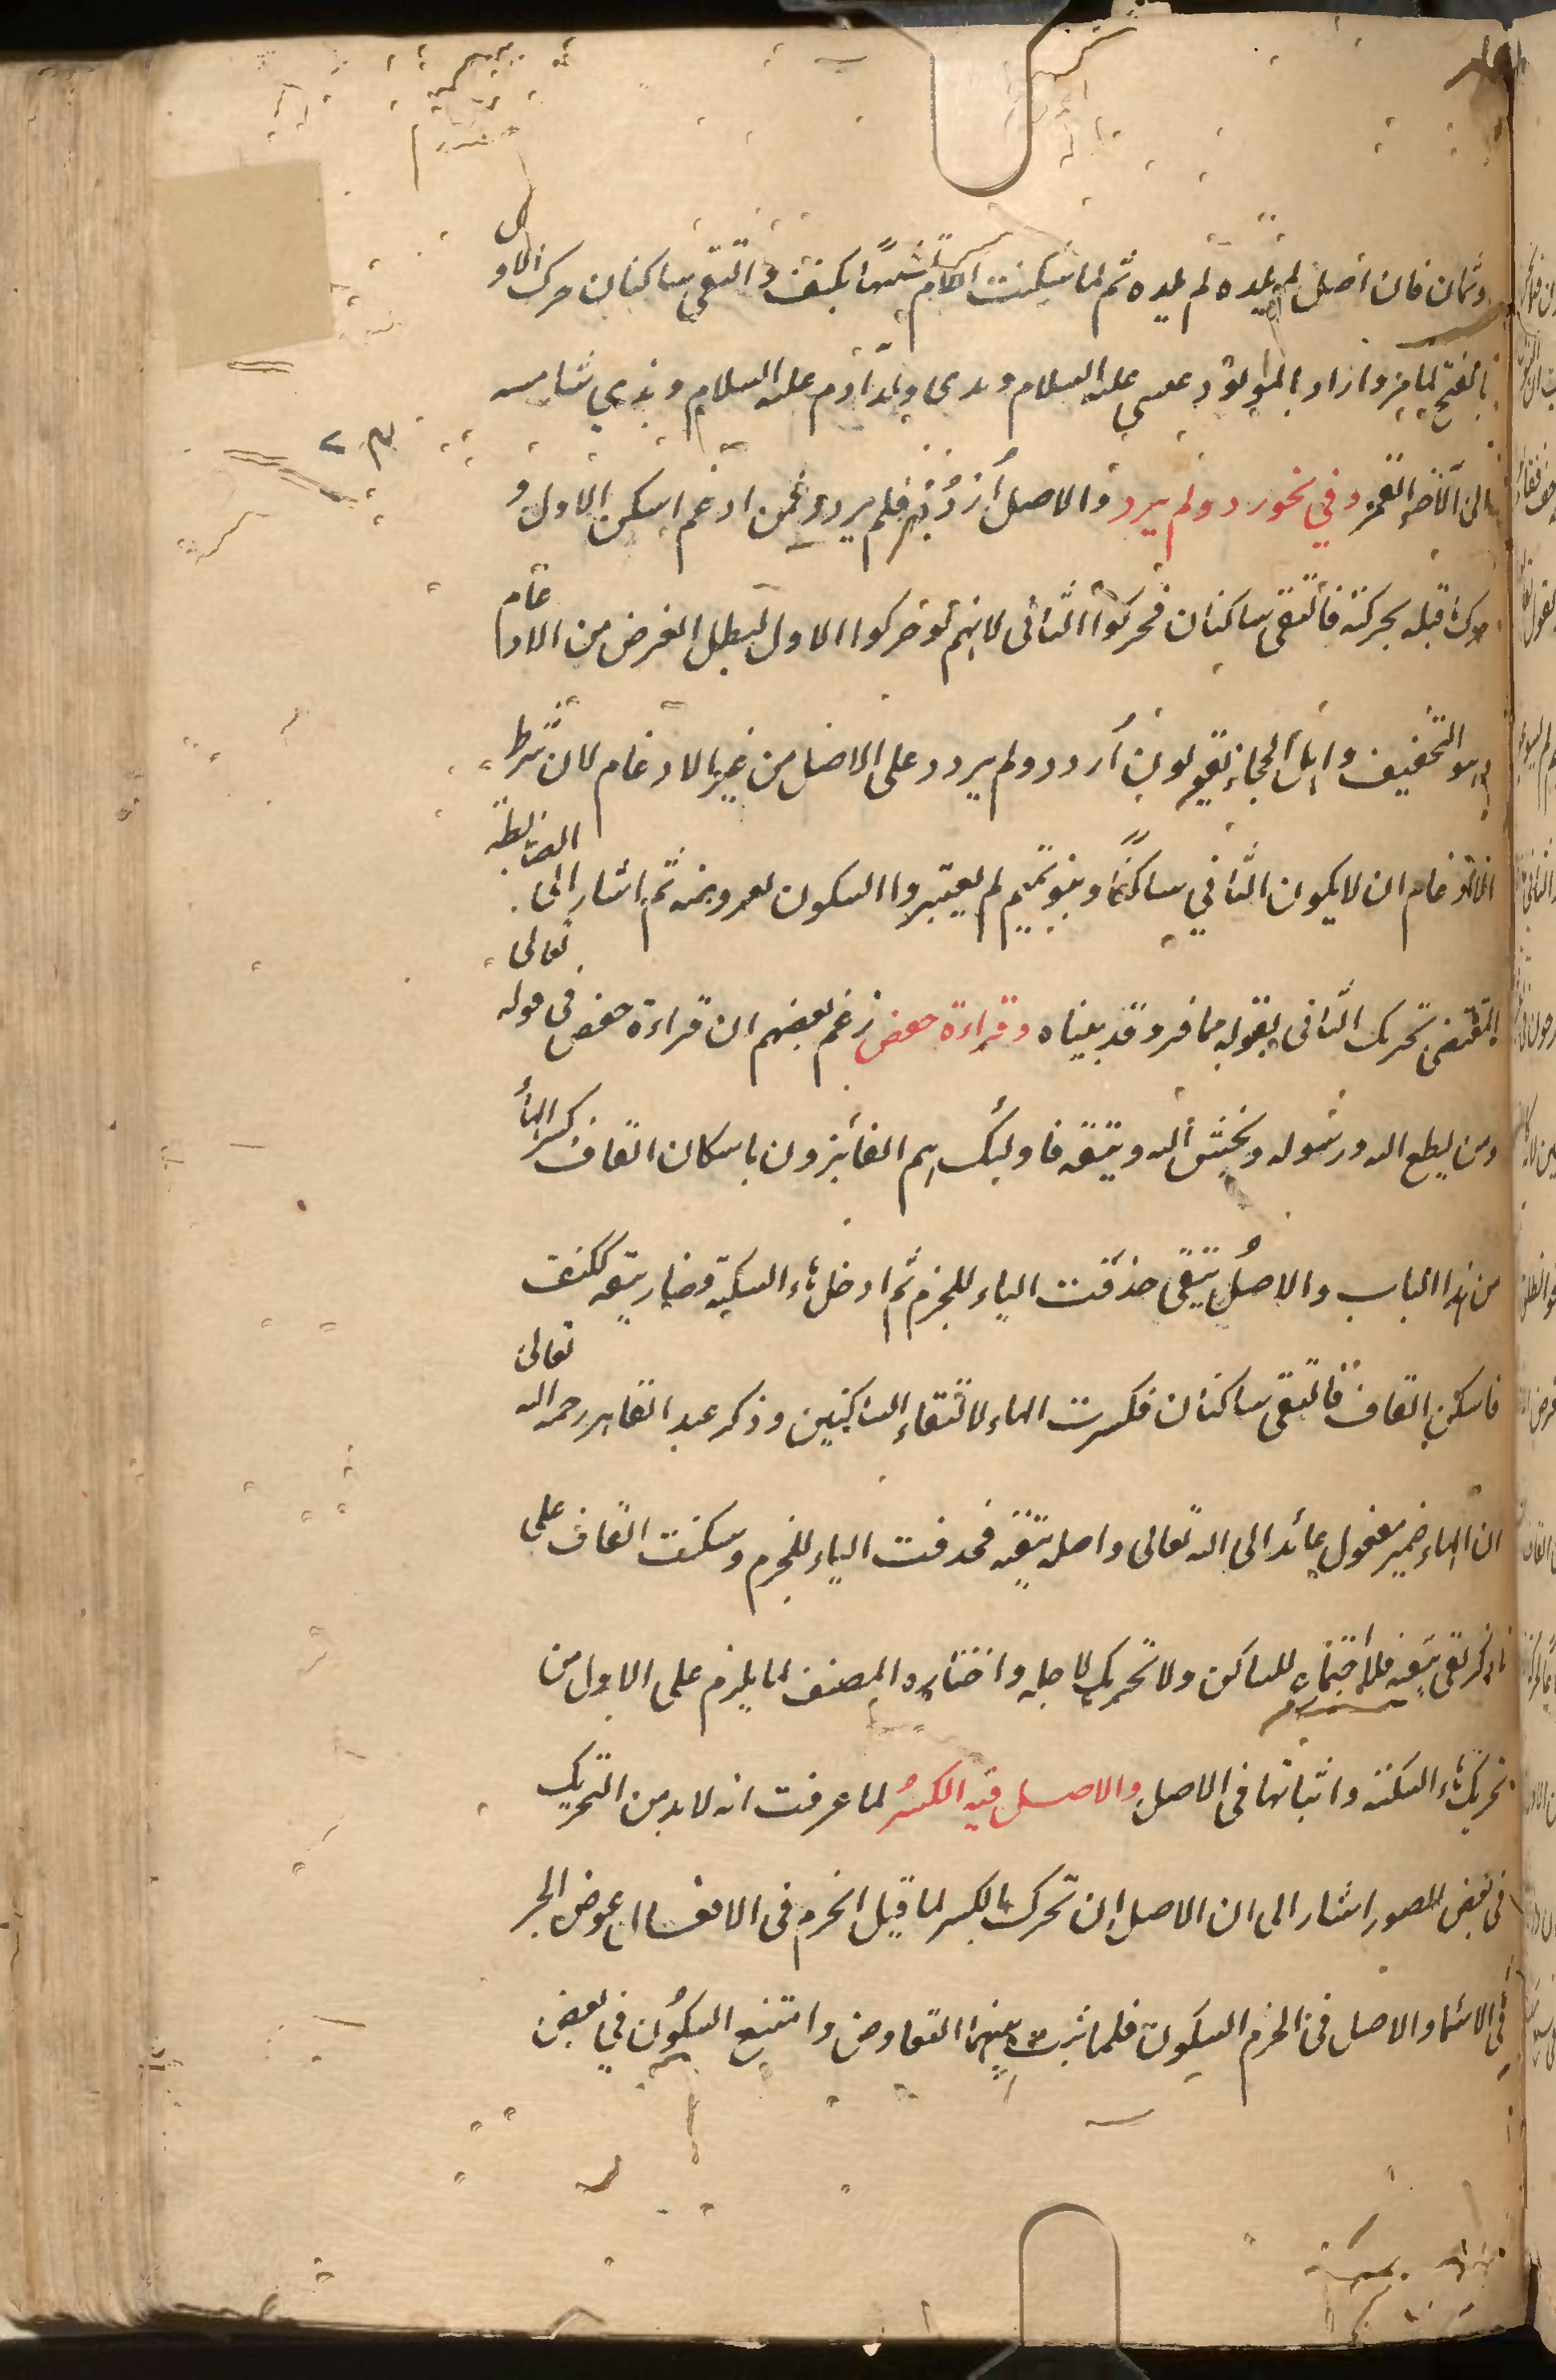 وثمان فان اصل لم يلده لم يلده ثم لما سكنت اللام تشبيها بكتف والتقى ساكنان حرك الاول
بالفتح لما مر وازاد بالمولود عيسى عليه السلام وبذى ولد آدم عليه السلام وبذي شامه
الى آخره القمر وفي نحو رد ولم يرد والاصل أردُد ولم يردد فمن ادغم اسكن الاول و
حرك ما قبله بحركته فالتقى ساكنان فحركوا الثانى لانهم لو حركوا الاول لبطل الغرض من الادغام
وهو التخفيف واهل الحجاز يقولون أردد ولم يردد على الاصل من غير الادغام لان شرط
الادغام ان لا يكون الثاني ساكنا وبنو تميم لم يعتبروا السكون لعروضه ثم اشار الى الضابطة
المقتضى تحريك الثانى بقوله مما فر وقد بيناه وقراءة حفص زعم بعضهم ان قراءة حفص فى قوله تعالى
ومن يطع الله ورسوله ويخش الله ويتقه فاولئك هم الفائزون باسكان القاف وكسر الهاء
من هذا الباب والاصل يتقى حذفت الياء للجزم ثم ادخل هاء السكتة وصار يتقه ككتف
فاسكن القاف فالتقى ساكنان فكسرت الهاء لالتقاء الساكنين وذكر عبد القاهر رحمه الله تعالى
ان الهاء ضمير مفعول عائد الى الله تعالى واصله يتقيه فحذفت الياء للجزم وسكنت القاف على
ما ذكر تقى يتقه فلا اجتماع للساكن ولا تحريك لاجله واختاره المصنف لما يلزم على الاول من
تحريك هاء السكتة واثباتها فى الاصل والاصل فيه الكسر لما عرفت انه لا بد من التحريك
فى بعض الصور اشار الى ان الاصل ان تحرك بالكسر لما قيل الجزم فى الافعال عوض الجر
في الاسماء والاصل فى الجزم السكون فلما ثبت بينهما التعاوض وامتنع السكون في بعض